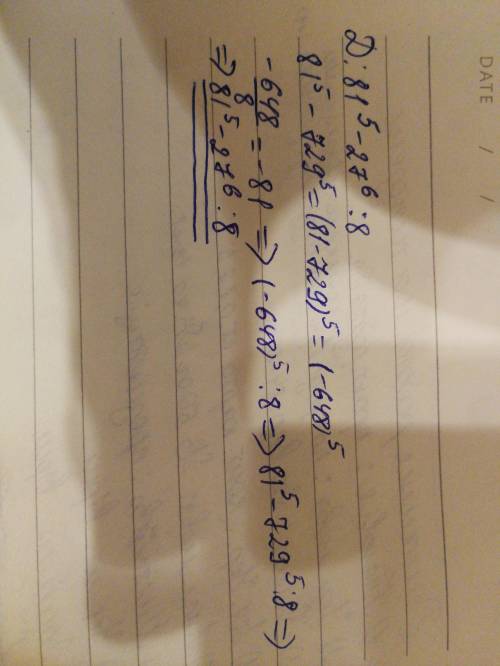 DATE / /
D: 81⁵ - 27⁶ : 8
81⁵ - 729⁵ = (81 - 729)⁵ = (-648)⁵
-648/8 = -81 => (-648)⁵ : 8 => 81⁵ - 729⁵ : 8 =>
=> 81⁵ - 27⁶ : 8